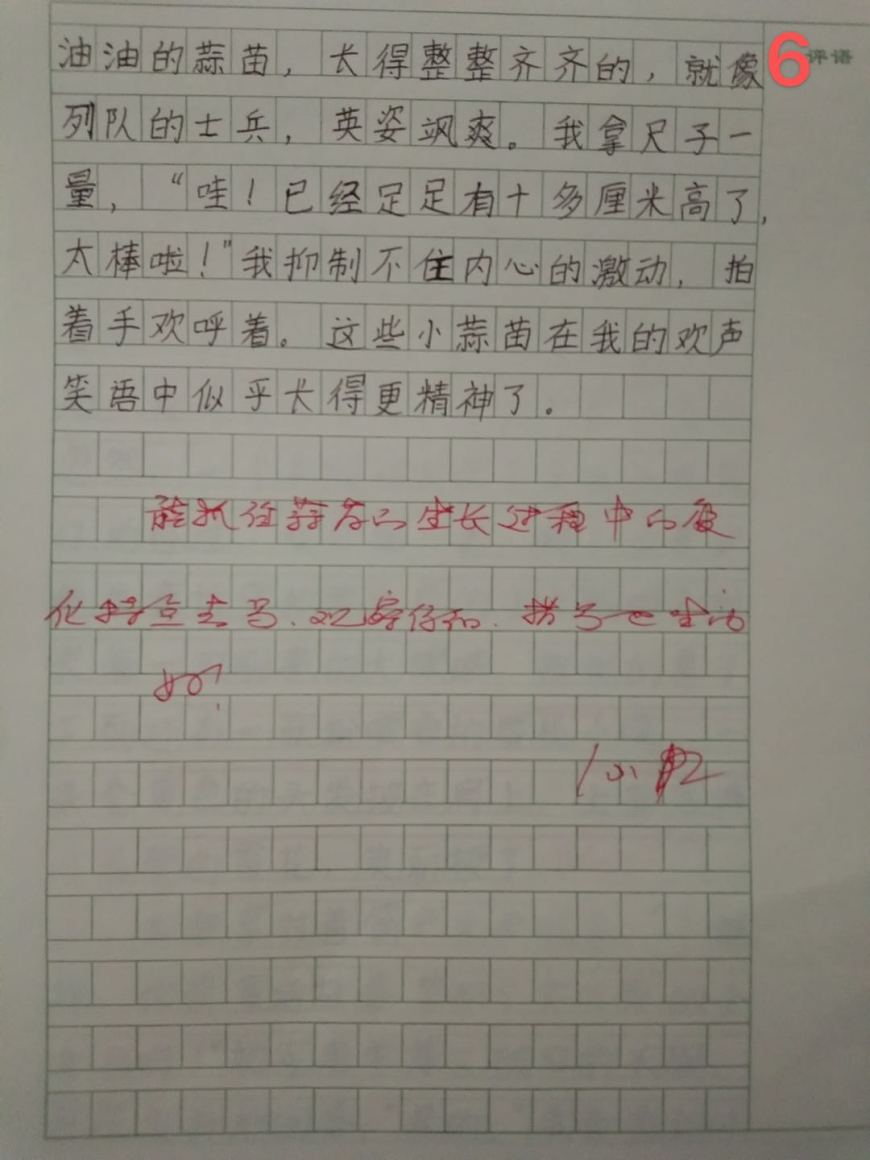 油油的蒜苗，长得整整齐齐的，就像
6
评语
列队的士兵，英姿飒爽。我拿尺子一
量，“哇！已经足足有十多厘米高了，
太棒啦！”我抑制不住内心的激动，拍
着手欢呼着。这些小蒜苗在我的欢声
笑语中似乎长得更精神了。
能抓住蒜苗的生长过程中的变
化特点去写.观察仔细.描写也生动